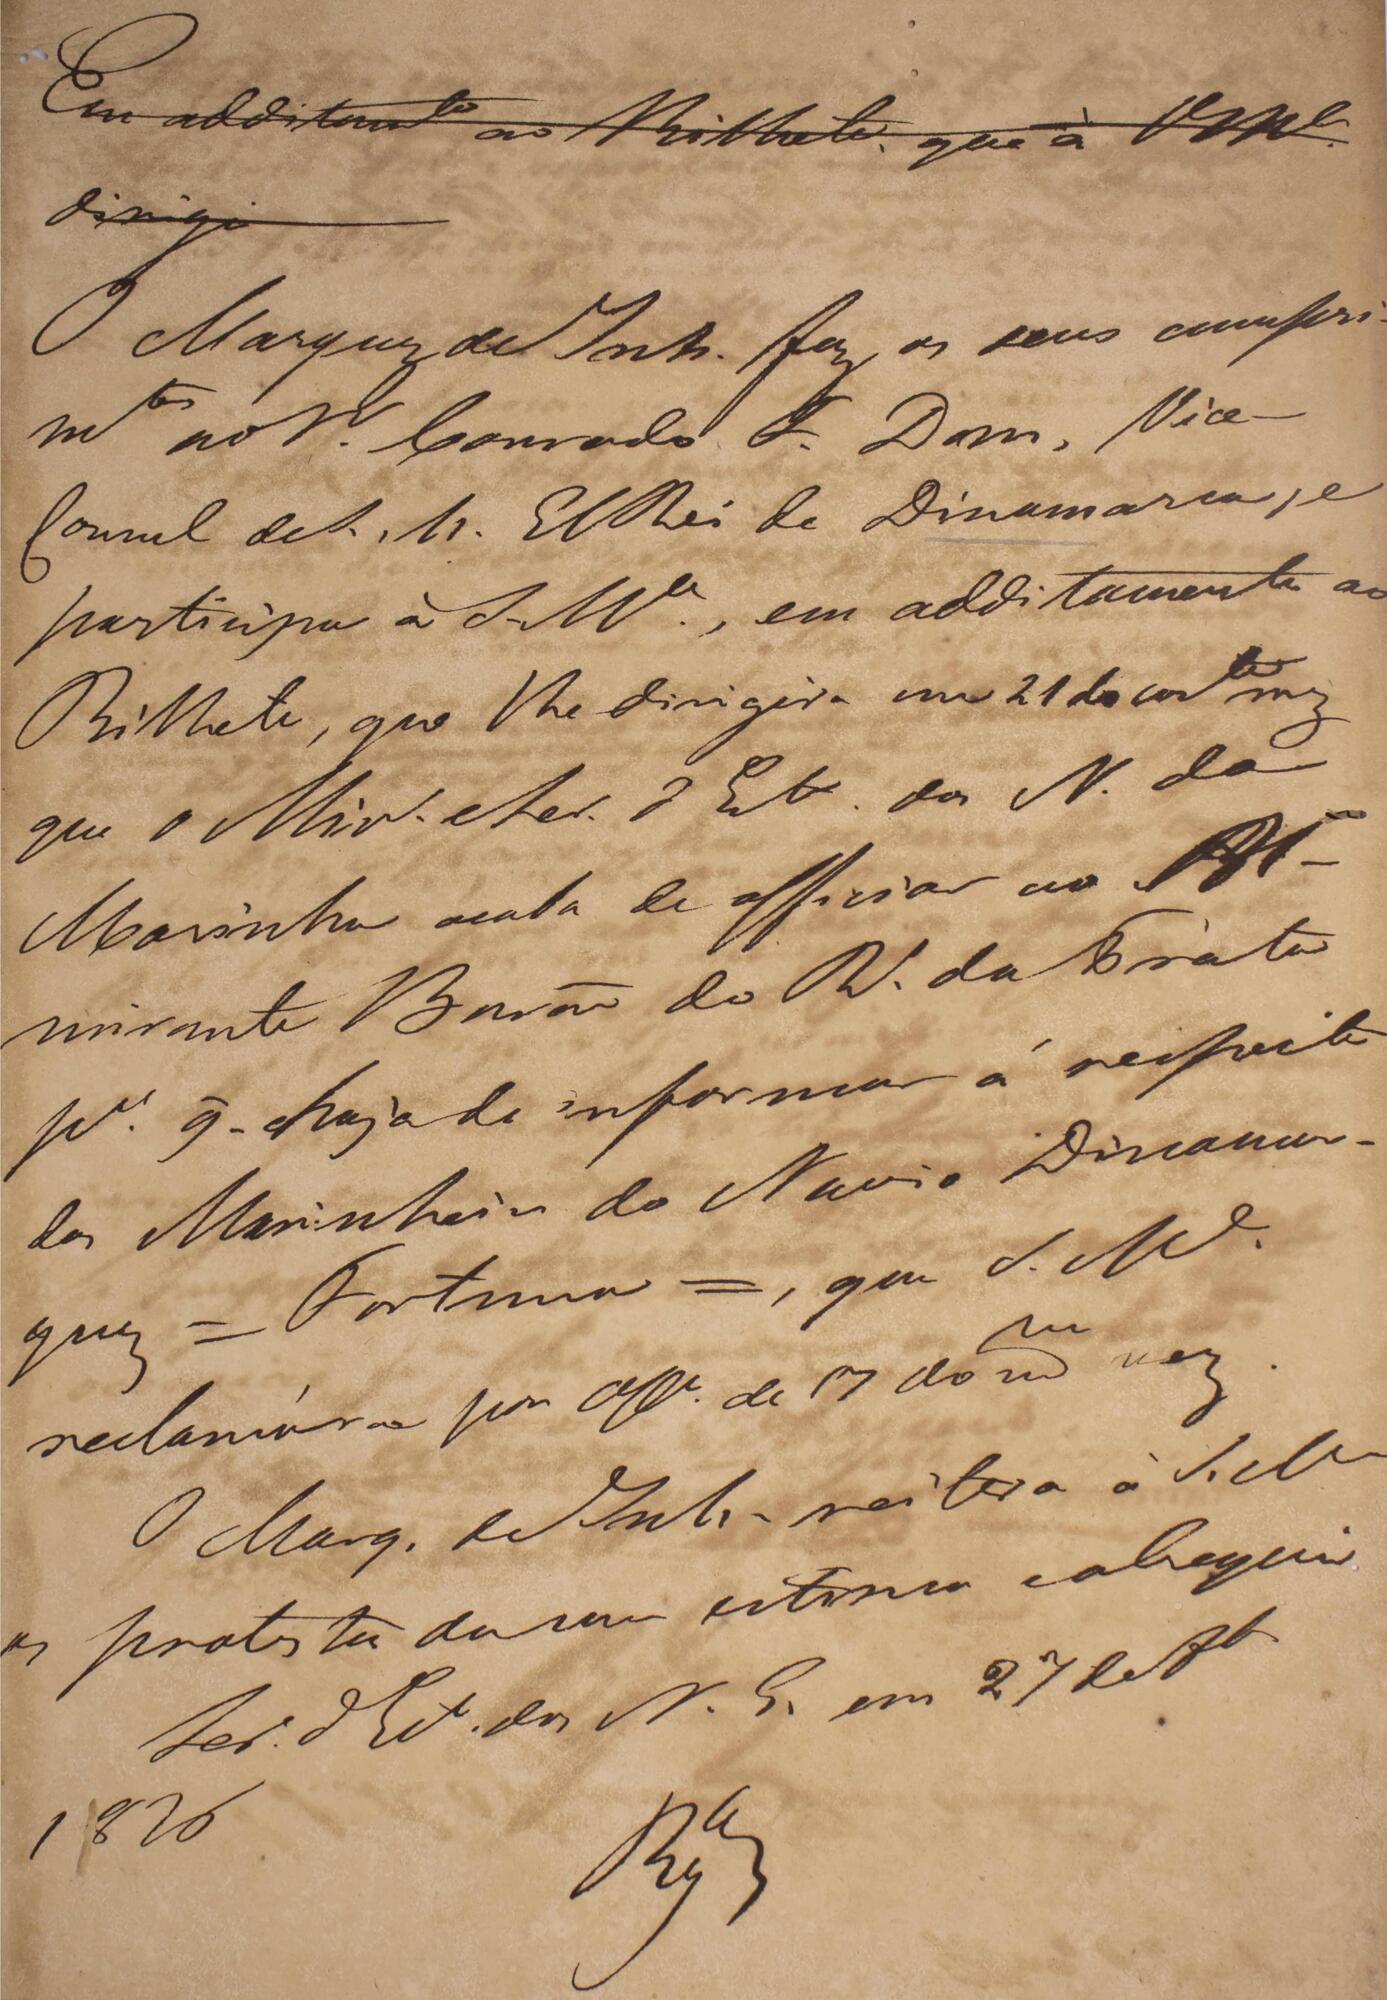 Em additam.to ao Bilhete que à V Mce.
dirigi
O Marquez de Inh. faz os seus cumpri-
m.tos ao Sr. Conrado F. Dom, Vice-
Consul de S. M. ElRei de Dinamarca, e
participa à S. Mce., em additamento ao
Bilhete, que lhe dirigira em 21 do corr.te mez
que o Min. e Secr. d'Est. dos N. da
Marinha acaba de officiar ao Al-
mirante Barão do R. da Prata
pa. q. haja de informar á respeito
dos Marinheiros do Navio Dinamar-
quez = Fortuna =, que S. Mce.
reclamára por Off. de 17 do m.mo mez.
O Marq. de Inh. reitera à S. Mce
os protestos da sua estima e obsequio
Secr. d'Est. dos N. E. em 27 de
1826